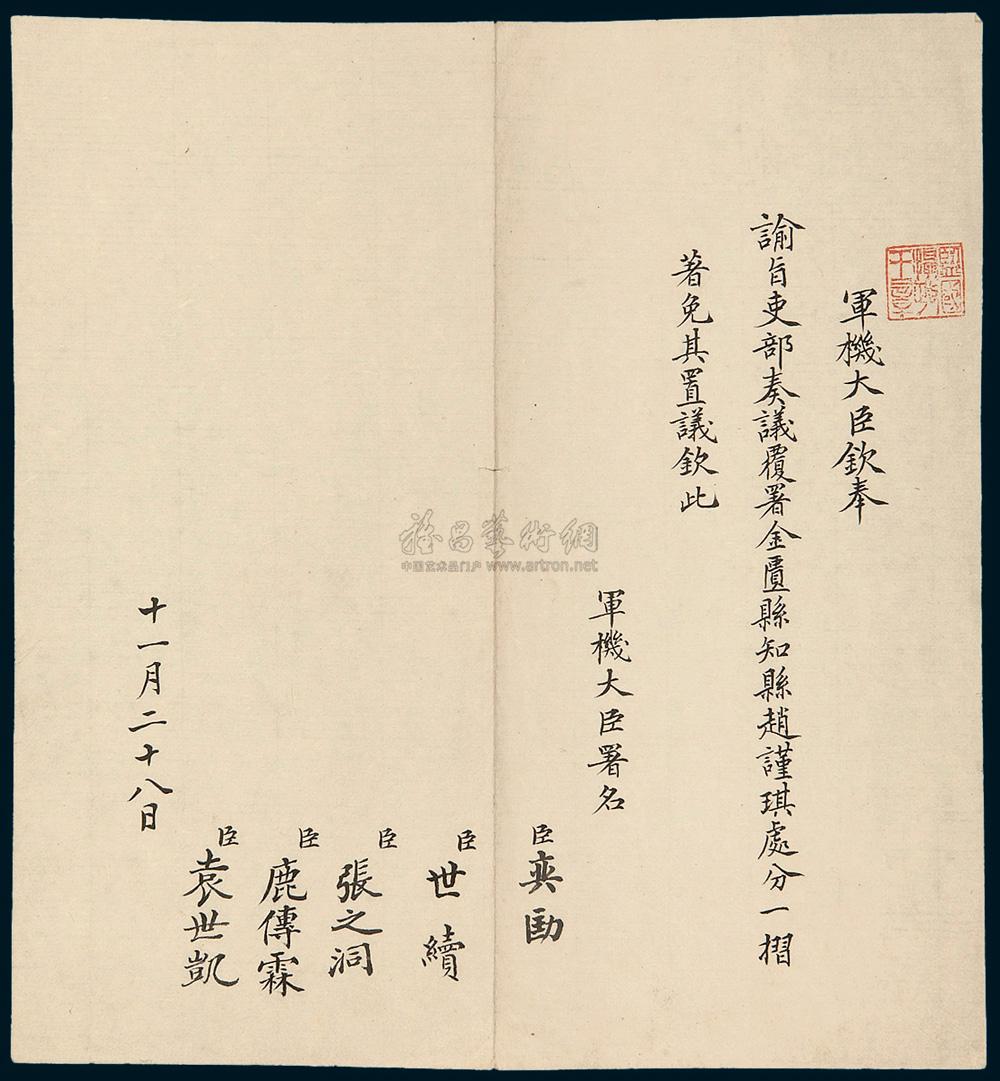 軍機大臣欽奉
諭旨吏部奏議覆署金匱縣知縣趙謹琪處分一摺
著免其置議欽此
軍機大臣署名
臣奕劻
臣世續
臣張之洞
臣鹿傳霖
臣袁世凱
十一月二十八日
監國攝政王章
雅昌藝術網
中国艺术品门户 www.artron.net